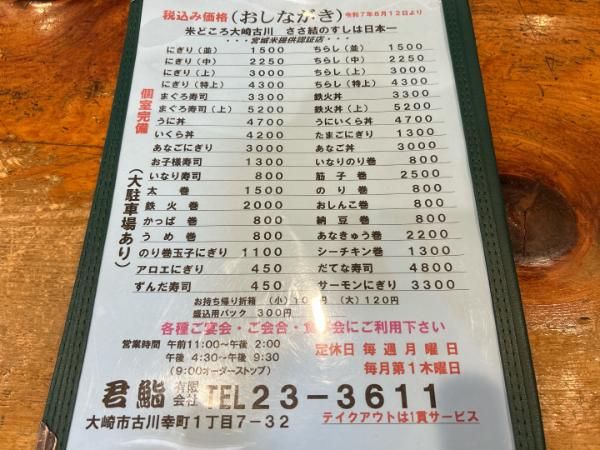 税込み価格(おしながき)令和7年6月12日より
米どころ大崎古川 ささ結のすしは日本一
・・・宮城米提供認証店・・・
個室完備
(大駐車場あり)
にぎり(並) 1500 ちらし(並) 1500
にぎり(中) 2250 ちらし(中) 2250
にぎり(上) 3000 ちらし(上) 3000
にぎり(特上) 4300 ちらし(特上) 4300
まぐろ寿司 3300 鉄火丼 3300
まぐろ寿司(上) 5200 鉄火丼(上) 5200
うに丼 4700 うにいくら丼 4700
いくら丼 4200 たまごにぎり 1300
あなごにぎり 3000 あなご丼 3000
お子様寿司 1300 いなりのり巻 800
いなり寿司 800 筋子巻 2500
太巻 1500 のり巻 800
鉄火巻 2000 おしんこ巻 800
かっぱ巻 800 納豆巻 800
うめ巻 800 あなきゅう巻 2200
のり巻玉子にぎり 1100 シーチキン巻 1300
アロエにぎり 450 だてな寿司 4800
ずんだ寿司 450 サーモンにぎり 3300
お持ち帰り折箱 (小)100円 (大)120円
盛込用パック 300円
各種ご宴会・ご会合・食事会にご利用下さい
営業時間 午前11:00〜午後 2:00
午後 4:30〜午後 9:30
(9:00オーダーストップ)
定休日 毎週月曜日
毎月第1木曜日
君鮨 有限会社 TEL23-3611
大崎市古川幸町1丁目7-32
テイクアウトは1貫サービス